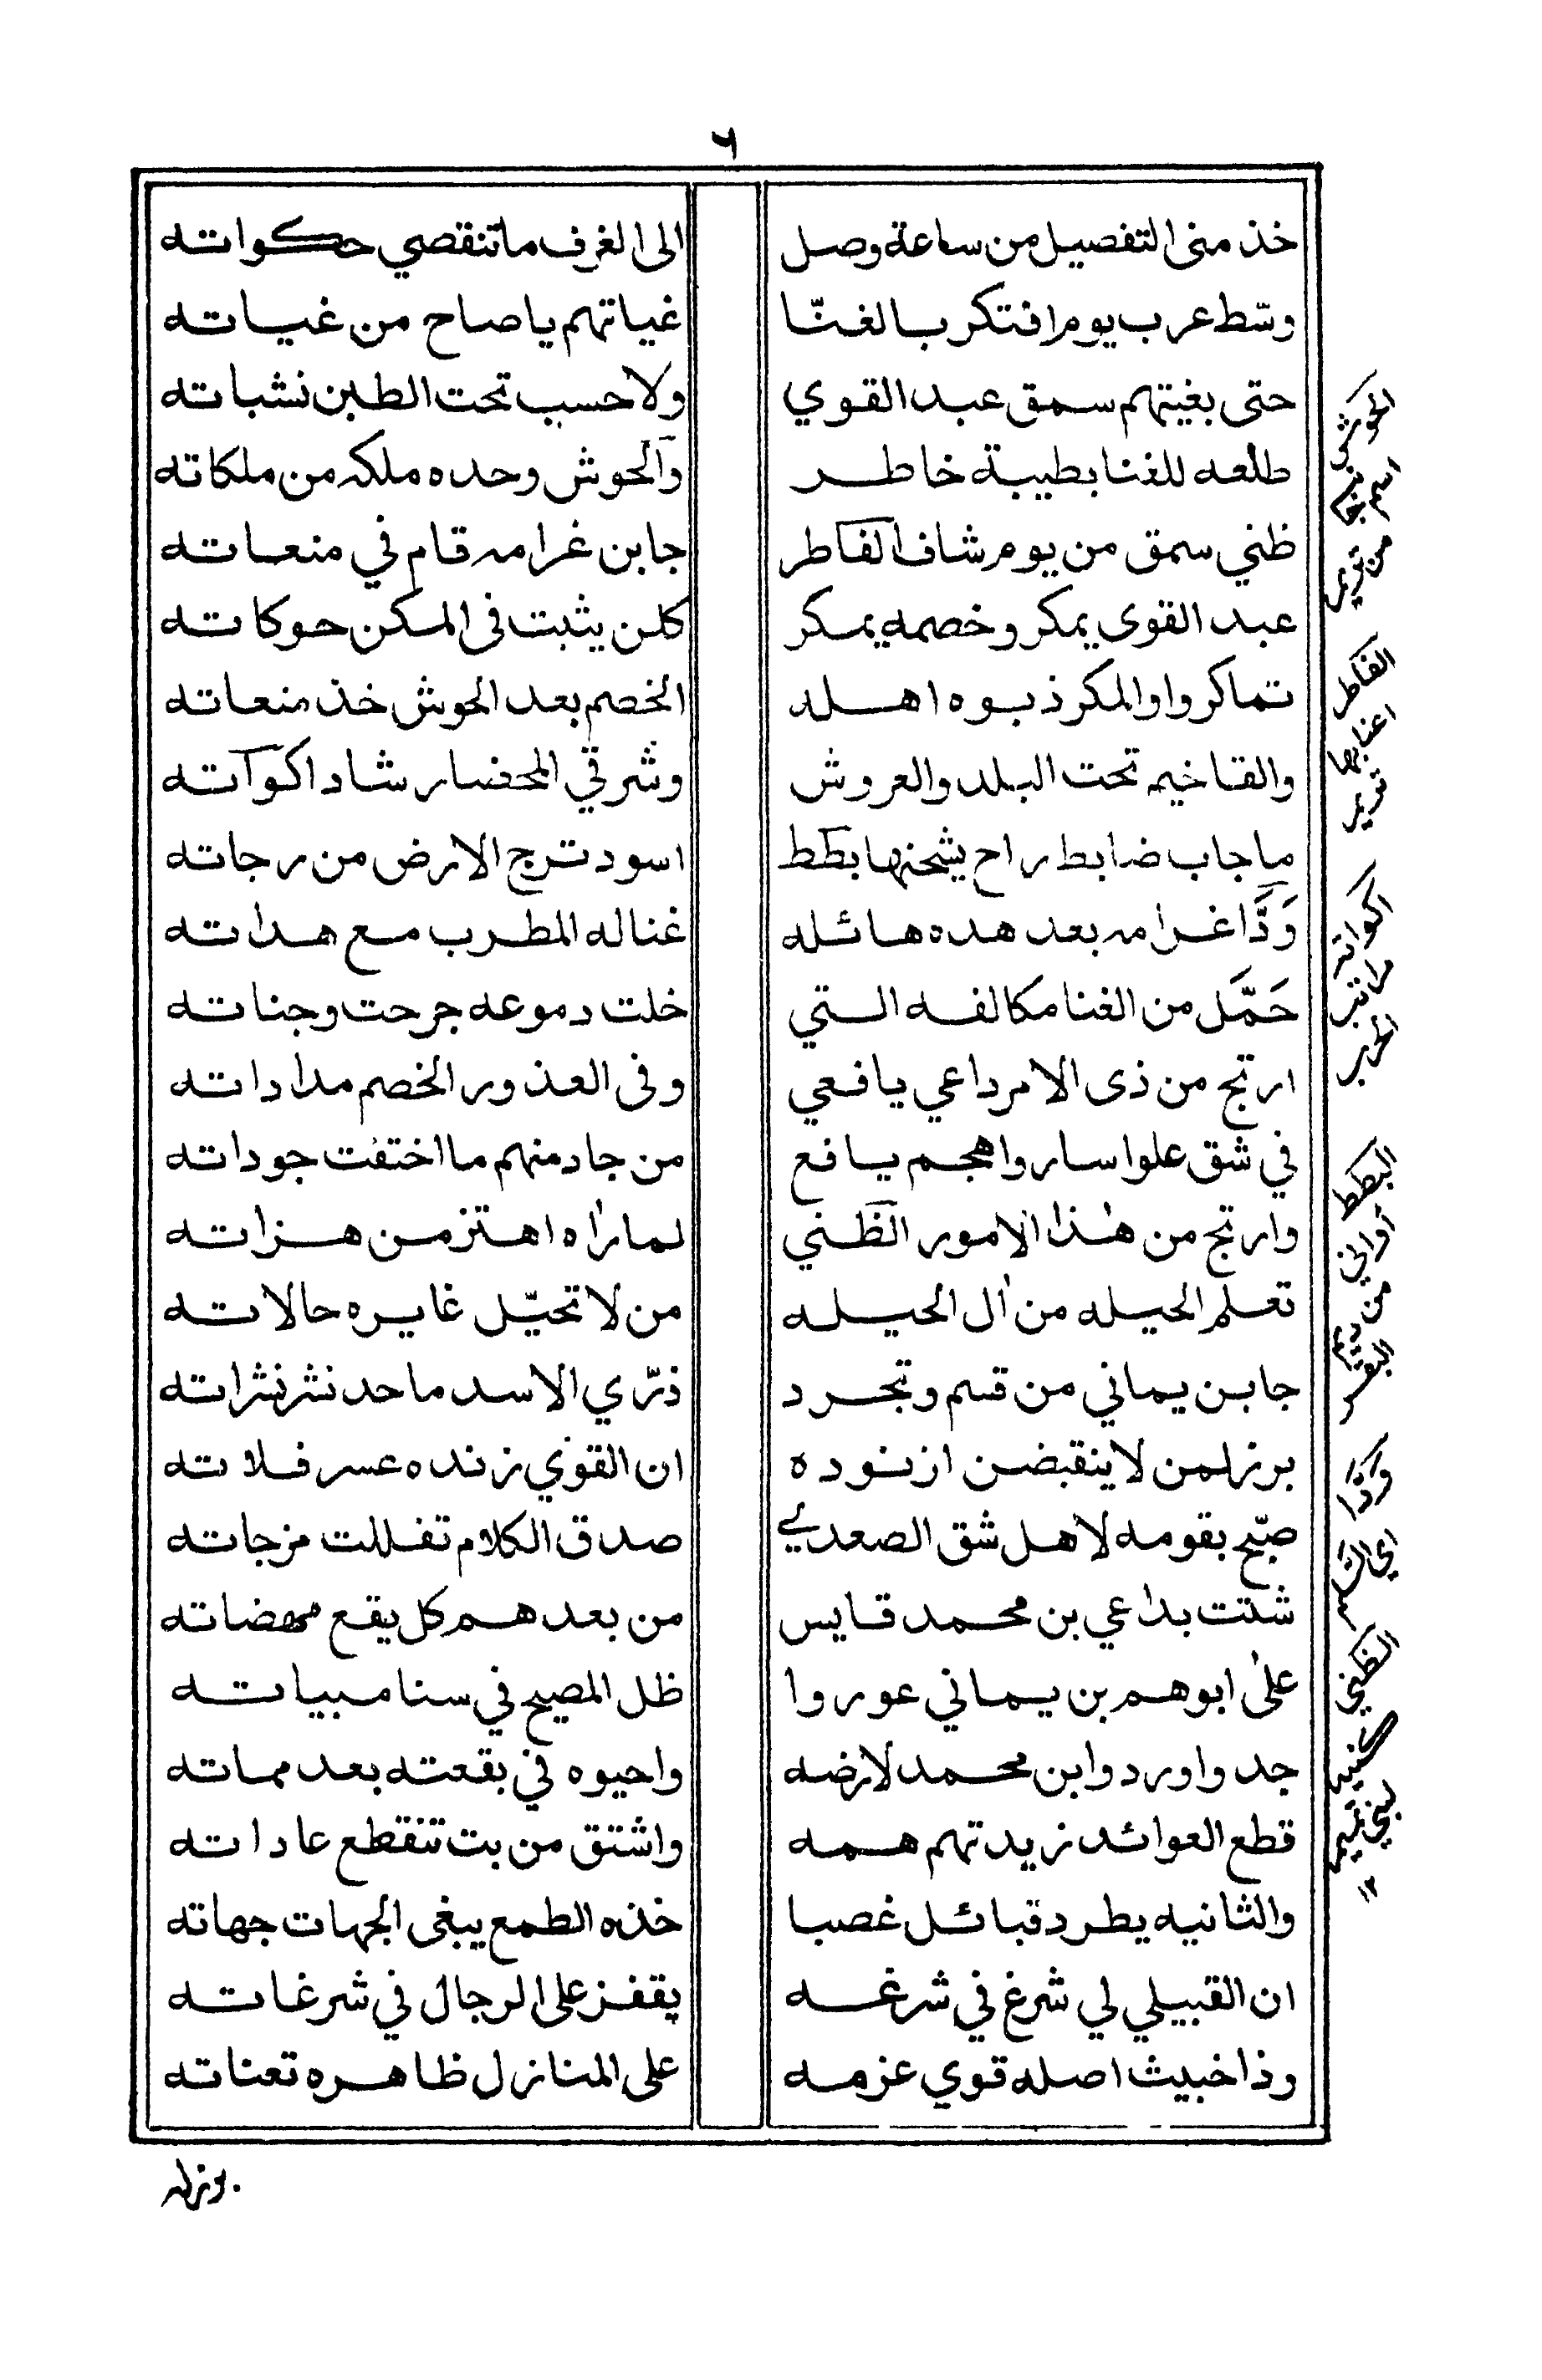 ٦
خذ منى التفصيل من ساعة وصل الى الغرف ماتنقصي حكواته
وسّط عرب يوم افتكر بالغنّا غياتهم ياصاح من غياته
حتى بغيتهم سمق عبد القوي ولا حسب تحت الطبن نشباته
طلعه للغنا بطيبة خاطر والحوش وحده ملكه من ملكاته
ظني سمق من يوم شاف الفاطر جابن غرامه قام في منعاته
عبد القوى يمكر وخصمه يمكر كلن يثبت فى المكن حوكاته
تماكروا والمكر ذبوه اهله الخصم بعد الحوش خذ منعاته
والقا خيمه تحت البلد والعروش وشرقي المحضار شاد اكواته
ما جاب ضابط راح يشحنها بطط اسود ترج الارض من رجاته
وَدَّا غرامه بعد هده هائله غناله المطرب مع هداته
حَمَّل من الغنا مكالفه التي خلت دموعه جرحت وجناته
ارتج من ذى الامر داعي يافعي وفى العذور الخصم مداداته
في شق علوا سار واهجم يافع من جاد منهم ما اختفت جوداته
وارتج من هذا الامور الظني لما راه اهتز من هزاته
تعلم الحيله من ال الحيله من لا تحيّل غايره حالاته
جابن يماني من قسم وتجرد ذرّي الاسد ماحد نثر نثراته
برز لمن لا ينقبضن ازنوده ان القوي زنده عسر فلاته
صبّح بقومه لاهل شق الصعدي صدق الكلام تفللت مزجاته
شتت بداعي بن محمد قايس من بعدهم كل يقع مهضاته
على ابوهم بن يماني عوروا ظل المصيح في سنا مبياته
جد واوردوا بن محمد لارضه واحيوه في بقعته بعد مماته
قطع العوائد زيدتهم همه واشتق من بت تنقطع عاداته
والثانيه يطرد قبائل غصبا خذه الطمع يبغى الجهات جهاته
ان القبيلي لي شرغ في شرغه يقفز على الرجال في شرغاته
وذا خبيث اصله قوي عزمه على المنازل ظاهره تعناته
الحوش
اسم
من تريم
الفاطر
اعنابها
اكواته
مراتب
الحرب
البطط
اواني
من
وَدَّا
اي
الظني
كنيه
لبني تميم
١٢